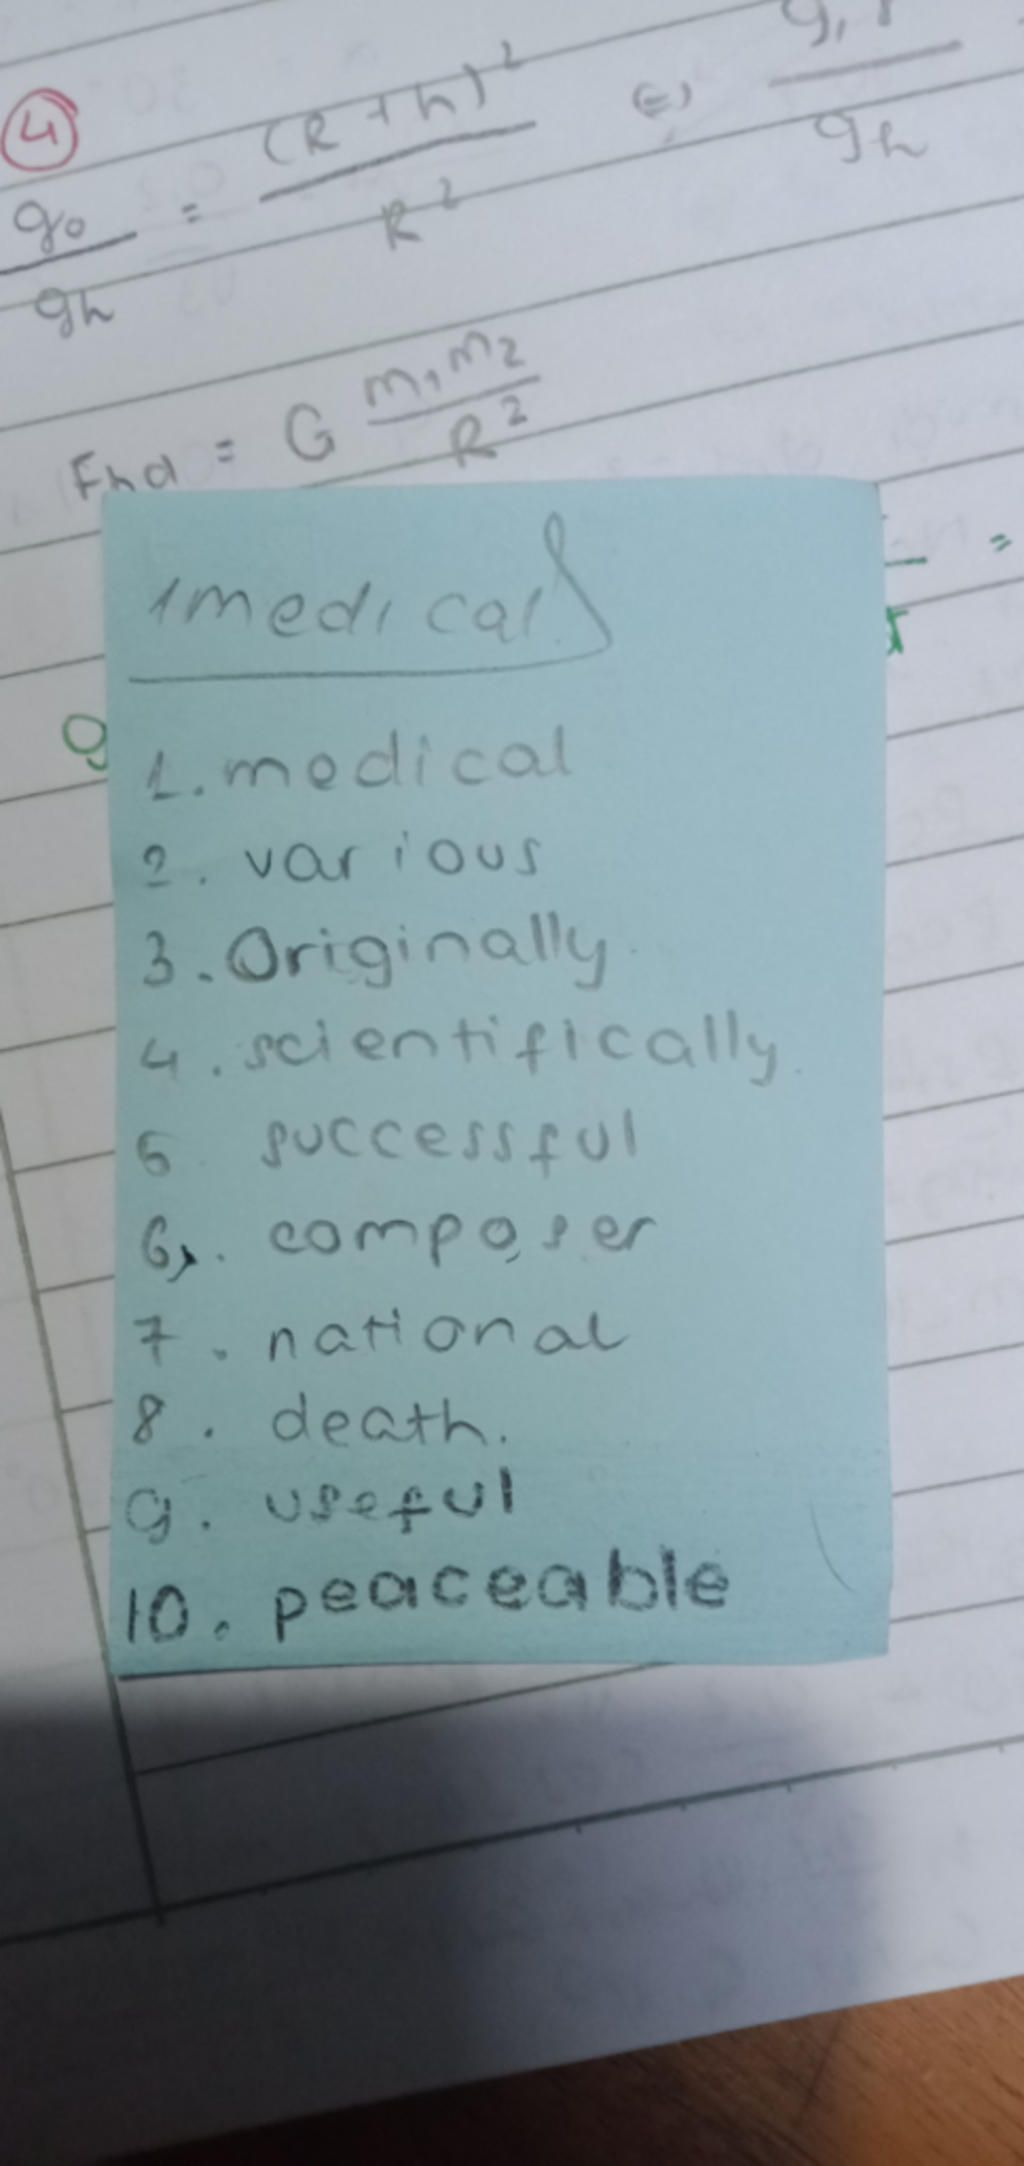 4
g₀/gh = (R+h)²/R² (=)
gh
Fhd = G m₁m₂/R²
=
g
1medical
1. medical
2. various
3. Originally.
4. scientifically.
5. successful
6. composer
7. national
8. death.
9. useful
10. peaceable